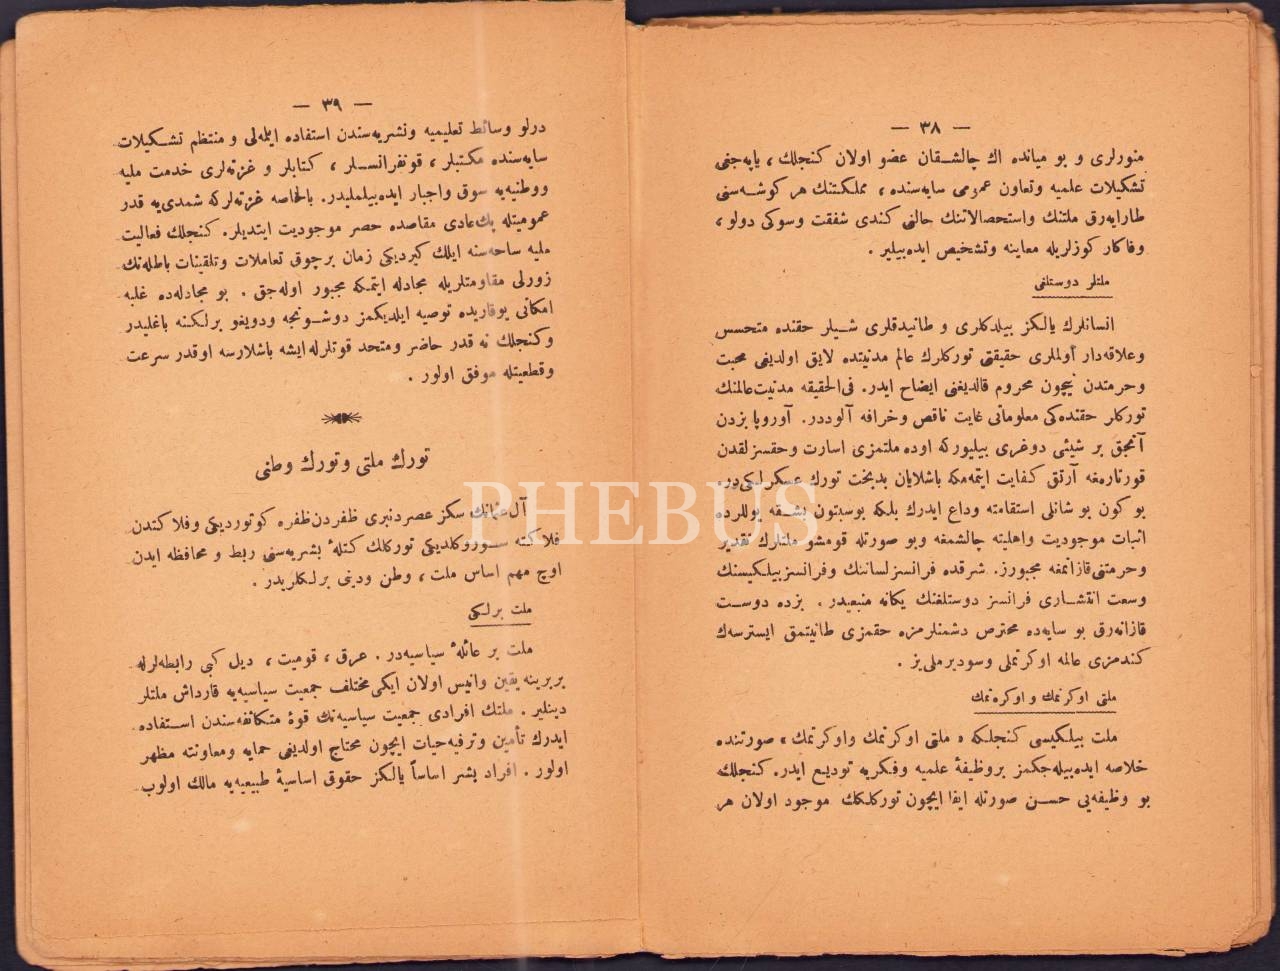 — ٣٨ —
منورلری و بو میانده اك چالشقان عضو اولان کنجلك ، یاپه‌جغی
تشکیلات علمیه وتعاون عمومی سایه‌سنده ، مملکتنك هر کوشه‌سنی
طارایه‌رق ملتنك واستحصالاتنك حالنی کندی شفقت وسوکی دولو ،
وفاکار کوزلریله معاینه وتشخیص ایده‌بیلیر .
ملتلر دوستلغی
انسانلرك یالکز بیلدکلری و طانیدقلری شیلر حقنده متحسس
وعلاقه‌دار أولملری حقیقتی تورکلرك عالم مدنیتده لایق اولدیغی محبت
وحرمتدن نیچون محروم قالدیغنی ایضاح ایدر. فی‌الحقیقه مدنیت‌عالمنك
تورکلر حقنده‌کی معلوماتی غایت ناقص وخرافه آلوددر. آوروپا بزدن
آنجق بر شیئی دوغری بیلیورکه اوده ملتمزی اسارت وحقسزلقدن
قورتارمغه آرتق کفایت ایتمه‌مکه باشلایان بدبخت تورك عسکرلکی‌در.
بو کون بو شانلی استقامته وداع ایدرك بلکه بوسبتون بشقه یوللرده
اثبات موجودیت واهلیته چالشمغه وبو صورتله قومشو ملتلرك تقدیر
وحرمتنی‌قازانمغه مجبورز. شرقده فرانسزلساننك وفرانسزبیلکیسنك
وسعت انتشاری فرانسز دوستلغنك یکانه منبعیدر . بزده دوست
قازانه‌رق بو سایه‌ده محترص دشمنلرمزه حقمزی طانیتمق ایسترسه‌ك
کندمزی عالمه اوکرتملی وسودیرملی‌یز .
ملتی اوکرنمك و اوکره‌تمك
ملت بیلکیسی کنجلکه « ملتی اوکرنمك واوکرتمك » صورتنده
خلاصه ایده‌بیله‌جکمز بروظیفهٔ علمیه وفکریه تودیع ایدر. کنجلك
بو وظیفه‌یی حسن صورتله ایفا ایچون تورکلکك موجود اولان هر
— ٣٩ —
درلو وسائط تعلیمیه ونشریه‌سندن استفاده ایتمه‌لی و منتظم تشکیلات
سایه‌سنده مکتبلر ، قونفرانسلر ، کتابلر و غزته‌لری خدمت ملیه
ووطنیه‌یه سوق واجبار ایده‌بیلملیدر. بالخاصه غزته‌لرکه شمدی‌یه قدر
عمومیتله پك‌عادی مقاصده حصر موجودیت ایتدیلر. کنجلك فعالیت
ملیه ساحه‌سنه ایلك کیردیکی زمان برچوق تعاملات وتلقینات باطله‌نك
زورلی مقاومتلریله مجادله ایتمکه مجبور اوله‌جق . بو مجادله‌ده غلبه
امکانی یوقاریده توصیه ایلدیکمز دوشونجه ودویغو برلکنه باغلیدر
وکنجلك نه قدر حاضر ومتحد قوتلرله‌ایشه باشلارسه اوقدر سرعت
وقطعیتله موفق اولور .
تورك ملتی وتورك وطنی
آل‌عثمانك سکز عصردنبری ظفردن‌ظفره کوتوردیکی وفلاکتدن
فلاکته سوروکلدیکی تورکلك کتلهٔ بشریه‌سنی ربط و محافظه ایدن
اوچ مهم اساس ملت ، وطن ودینی برلکلریدر .
ملت برلکی
ملت بر عائلهٔ سیاسیه‌در . عرق ، قومیت ، دیل کبی رابطه‌لرله
بربرینه یقین وانیس اولان ایکی مختلف جمعیت سیاسیه‌یه قارداش ملتلر
دینلیر . ملتك افرادی جمعیت سیاسیه‌نك قوهٔ متکاثفه‌سندن استفاده
ایدرك تأمین وترفیه‌حیات ایچون محتاج اولدیغی حمایه ومعاونته مظهر
اولور . افراد بشر اساساً یالکز حقوق اساسیهٔ طبیعیه‌یه مالك اولوب
PHEBUS